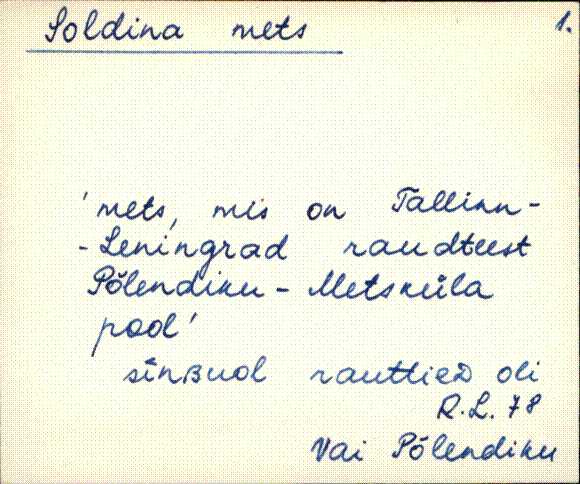 Soldina mets 1.
'mets, mis on Tallinn-
-Leningrad raudteest
Põlendiku - Metsküla
pool'
sīnʙuol rauttieᴅ oli
R.L. 78
Vai Põlendiku